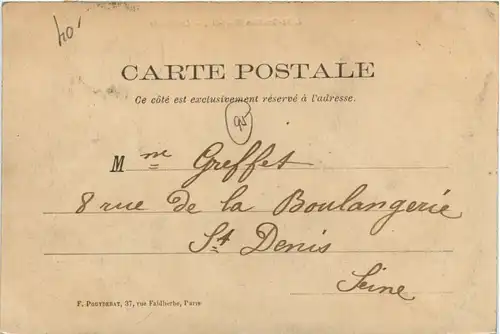 40,
CARTE POSTALE
Ce côté est exclusivement réservé à l'adresse.
Mme Greffet
8 rue de la Boulangerie
St Denis
Seine
37, rue Faidherbe, Paris